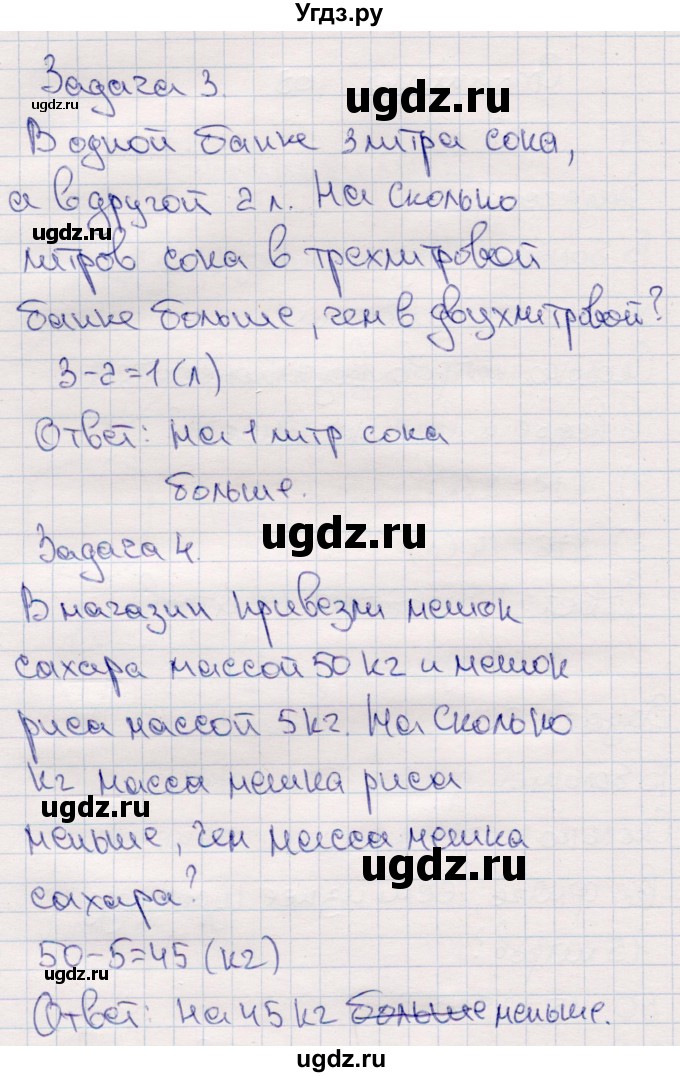 Угдз.ру
Задача 3.
ugdz.ru
ugdz.ru
В одной банке 3 литра сока,
а в другой 2 л. На сколько
ugdz.ru
литров сока в трехлитровой
банке больше, чем в двухлитровой?
3-2=1 (л)
Ответ: на 1 литр сока
больше.
ugdz.ru
Задача 4.
В магазин привезли мешок
сахара массой 50 кг и мешок
риса массой 5 кг. На сколько
кг масса мешка риса
ugdz.ru
меньше, чем масса мешка
ugdz.ru
сахара?
50-5=45 (кг)
ugdz.ru
Ответ: на 45 кг больше меньше.
ugdz.ru